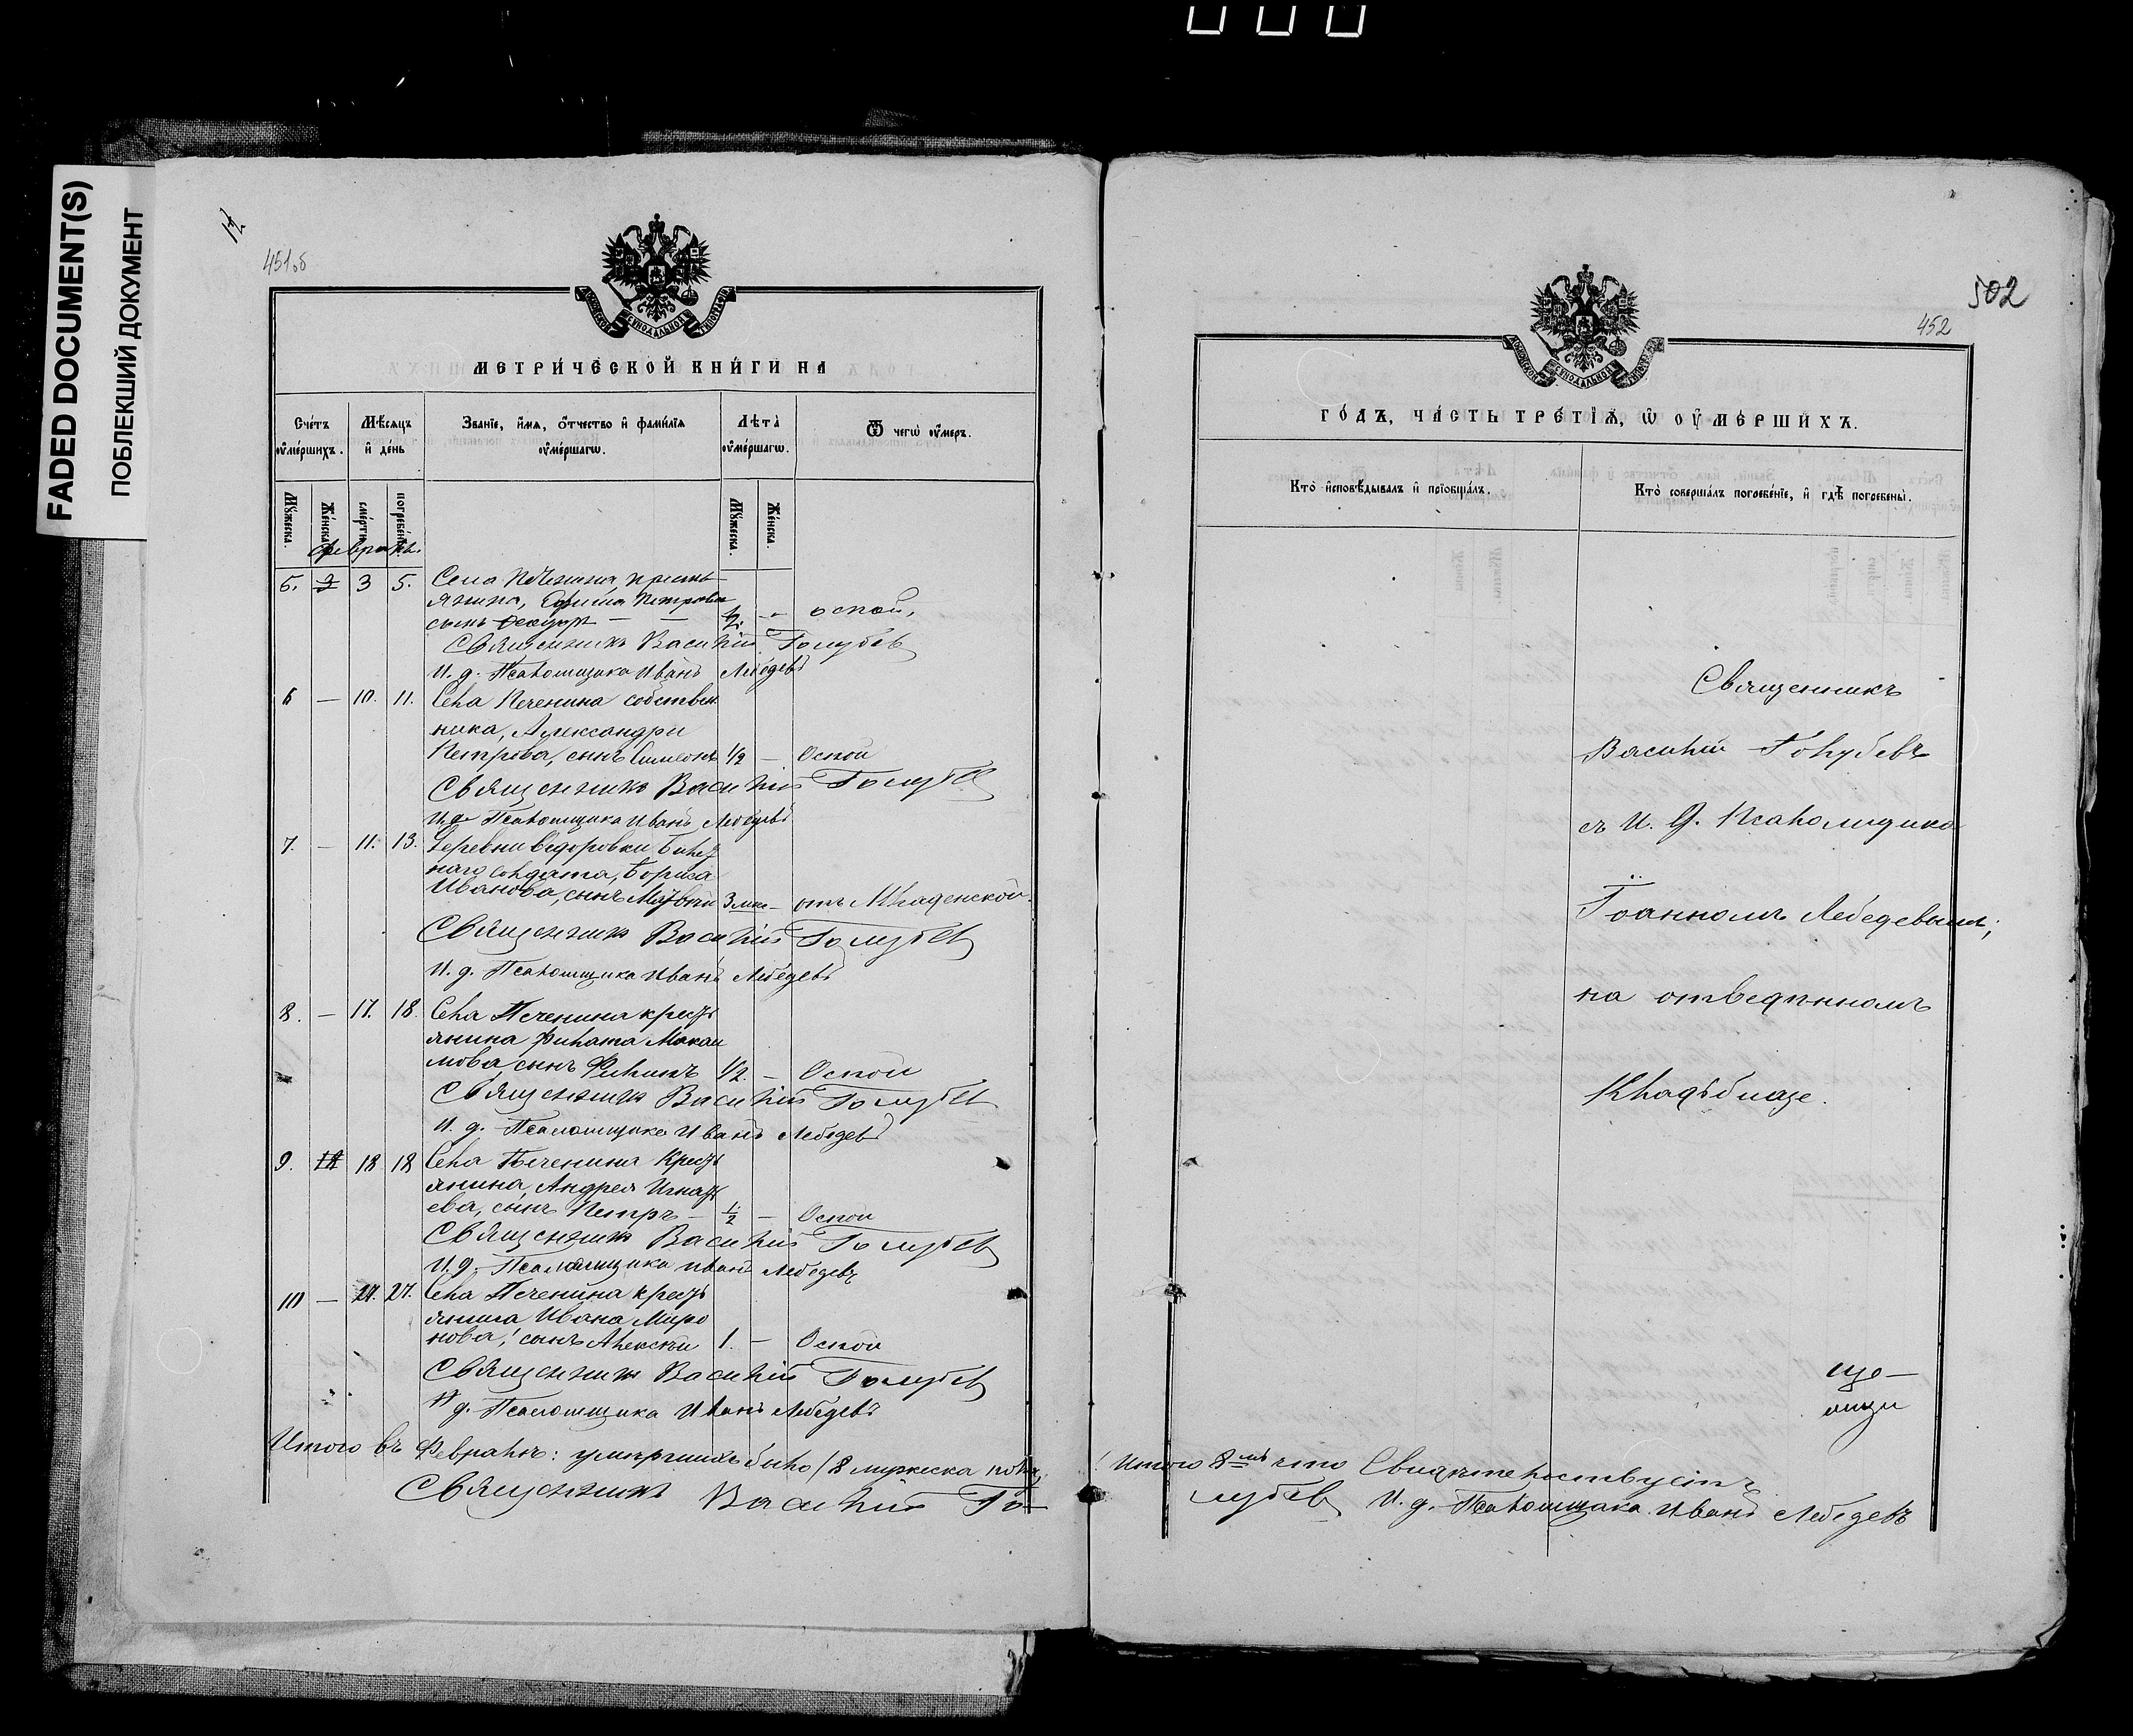 FADED DOCUMENT(S)
ПОБЛЕКШИЙ ДОКУМЕНТ
451об
МЕТРИ́ЧЕСКОЙ КНИ́ГИ НА
Сче́тъ ᲂу҆ме́ршихъ.
Мѣ́сѧцъ и҆ де́нь
Зва́нїе, и҆́мѧ, ѻ҆́тчество и҆ фами́лїѧ ᲂу҆ме́ршагѡ.
Лѣта̀ ᲂу҆ме́ршагѡ.
Ѿ чегѡ̀ ᲂу҆́меръ.
Мꙋ́жеска.
Же́нска.
сме́рти.
погребе́нїѧ
Мꙋ́жеска.
Же́нска.
Февраль.
5. 3 5. Села Печенина, кресть
янина, Ефима Петрова
сынъ Ѳеодоръ — — ½ - оспой,
Священникъ Василій Голубев
И. д. Псаломщика Иванъ Лебедевъ
6 — 10. 11. Села Печенина собствен
ника, Александра
Петрова, сынъ Симеонъ ½ — Оспой
Священникъ Василій Голубев
И. д. Псаломщика Иванъ Лебедевъ
7. — 11. 13. Деревни Ѳедоровки билет
наго солдата, Бориса
Иванова, сынъ Матвѣй 3 мѣс — отъ Младенской.
Священникъ Василій Голубев
И. д. Псаломщика Иванъ Лебедевъ
8. — 17. 18. Села Печенина кресть
янина Филата Макси
мова сынъ Филипъ ½. — Оспой
Священникъ Василій Голубев
И. д. Псаломщика Иванъ Лебедевъ
9. 18 18 Села Печенина Кресть
янина, Андрея Игнать
ева, сынъ Петръ — ½ — Оспой
Священникъ Василій Голубев
И. д. Псаломщика Иванъ Лебедевъ
10 — 27. Села Печенина кресть
янина Ивана Миро
нова, сынъ Алексѣй 1. — Оспой
Священникъ Василій Голубев
И д. Псаломщика Иванъ Лебедевъ
Итого въ Февралѣ: умершихъ было 8 мужеска пола,
Священникъ Василій Го-
502
452
ГО́ДЪ, ЧА́СТЬ ТРЕ́ТЇѦ, Ѡ҆ ОУ҆МЕ́РШИХЪ.
Кто̀ и҆сповѣ́дывалъ и҆ прїѡбща́лъ.
Кто̀ соверша́лъ погребе́нїе, и҆ гдѣ̀ погребены̀.
Священникъ
Василій Голубевъ
съ И. Д. Псаломщика
Іоанномъ Лебедевымъ;
на отведенномъ
Кладбище.
Итого 8мь что Свидѣтельствуетъ
лубев И. д. Псаломщика Иванъ Лебедевъ